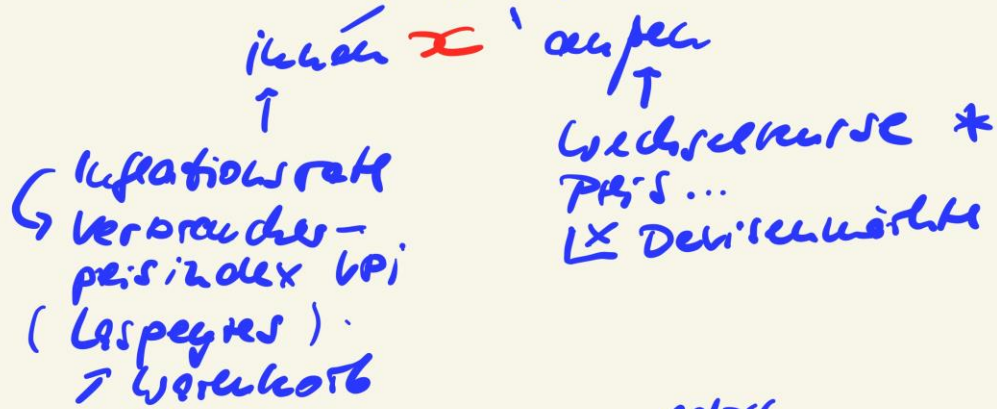 innen außen
↑ ↑
Inflationsrate
Verbraucher-
preisindex VPI
(Laspeyres)
↑ Warenkorb
Wechselkurse *
Preis...
Devisenmärkte